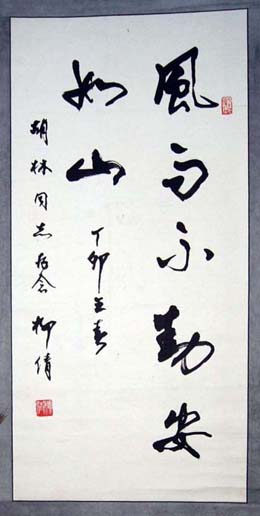 風雨不動安
如山
丁卯春
胡林同志存念
柳倩